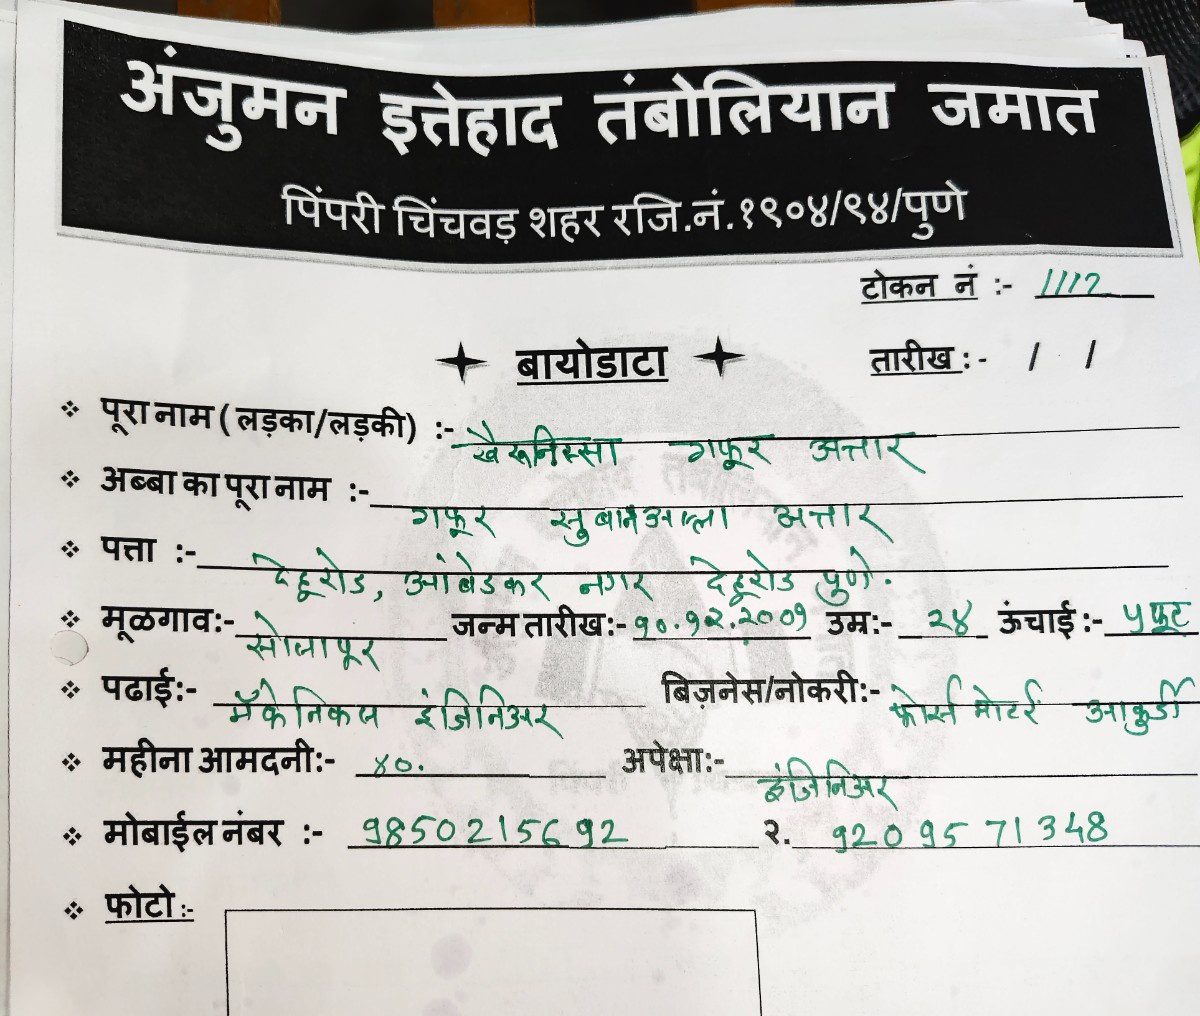 अंजुमन इत्तेहाद तंबोलियान जमात
पिंपरी चिंचवड़ शहर रजि.नं.१९०४/९४/पुणे
टोकन नं :- 1112
बायोडाटा
तारीख :- / /
पूरा नाम ( लड़का/लड़की) :- खैरूनिस्सा गफूर अत्तार
अब्बा का पूरा नाम :- गफूर सुबानअल्ला अत्तार
पत्ता :- देहूरोड, आंबेडकर नगर देहूरोड पुणे.
मूळगाव:- सोलापूर जन्म तारीख:- १०.१२.2००१ उम्र:- २४ ऊंचाई :- ५ फूट
पढाई:- मॅकेनिकल इंजिनिअर बिज़नेस/नोकरी:- फोर्स मोटर्स आकुर्डी
महीना आमदनी:- ४०. अपेक्षा:- इंजिनिअर
मोबाईल नंबर :- 9850215692 २. 9209571348
फोटो :-